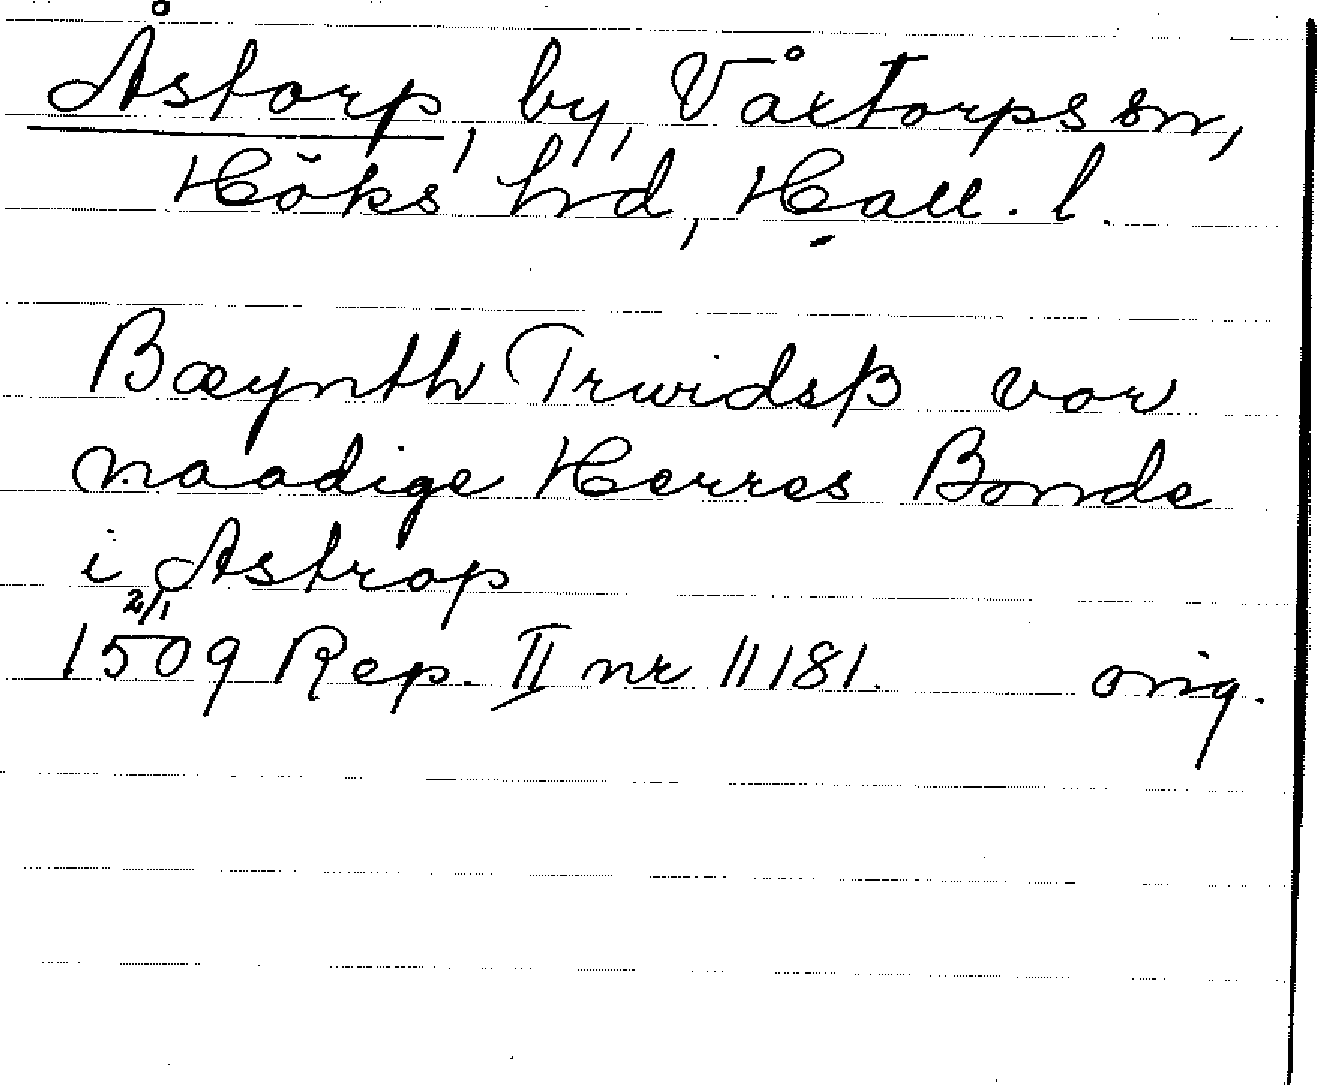 Åstorp, by, Våxtorps sn,
Höks hd, Hall. l.
Bæynth Trwidsß vor
naadige Herres Bonde
i Astrop
1509 2/1 Rep. II nr 11181. orig.